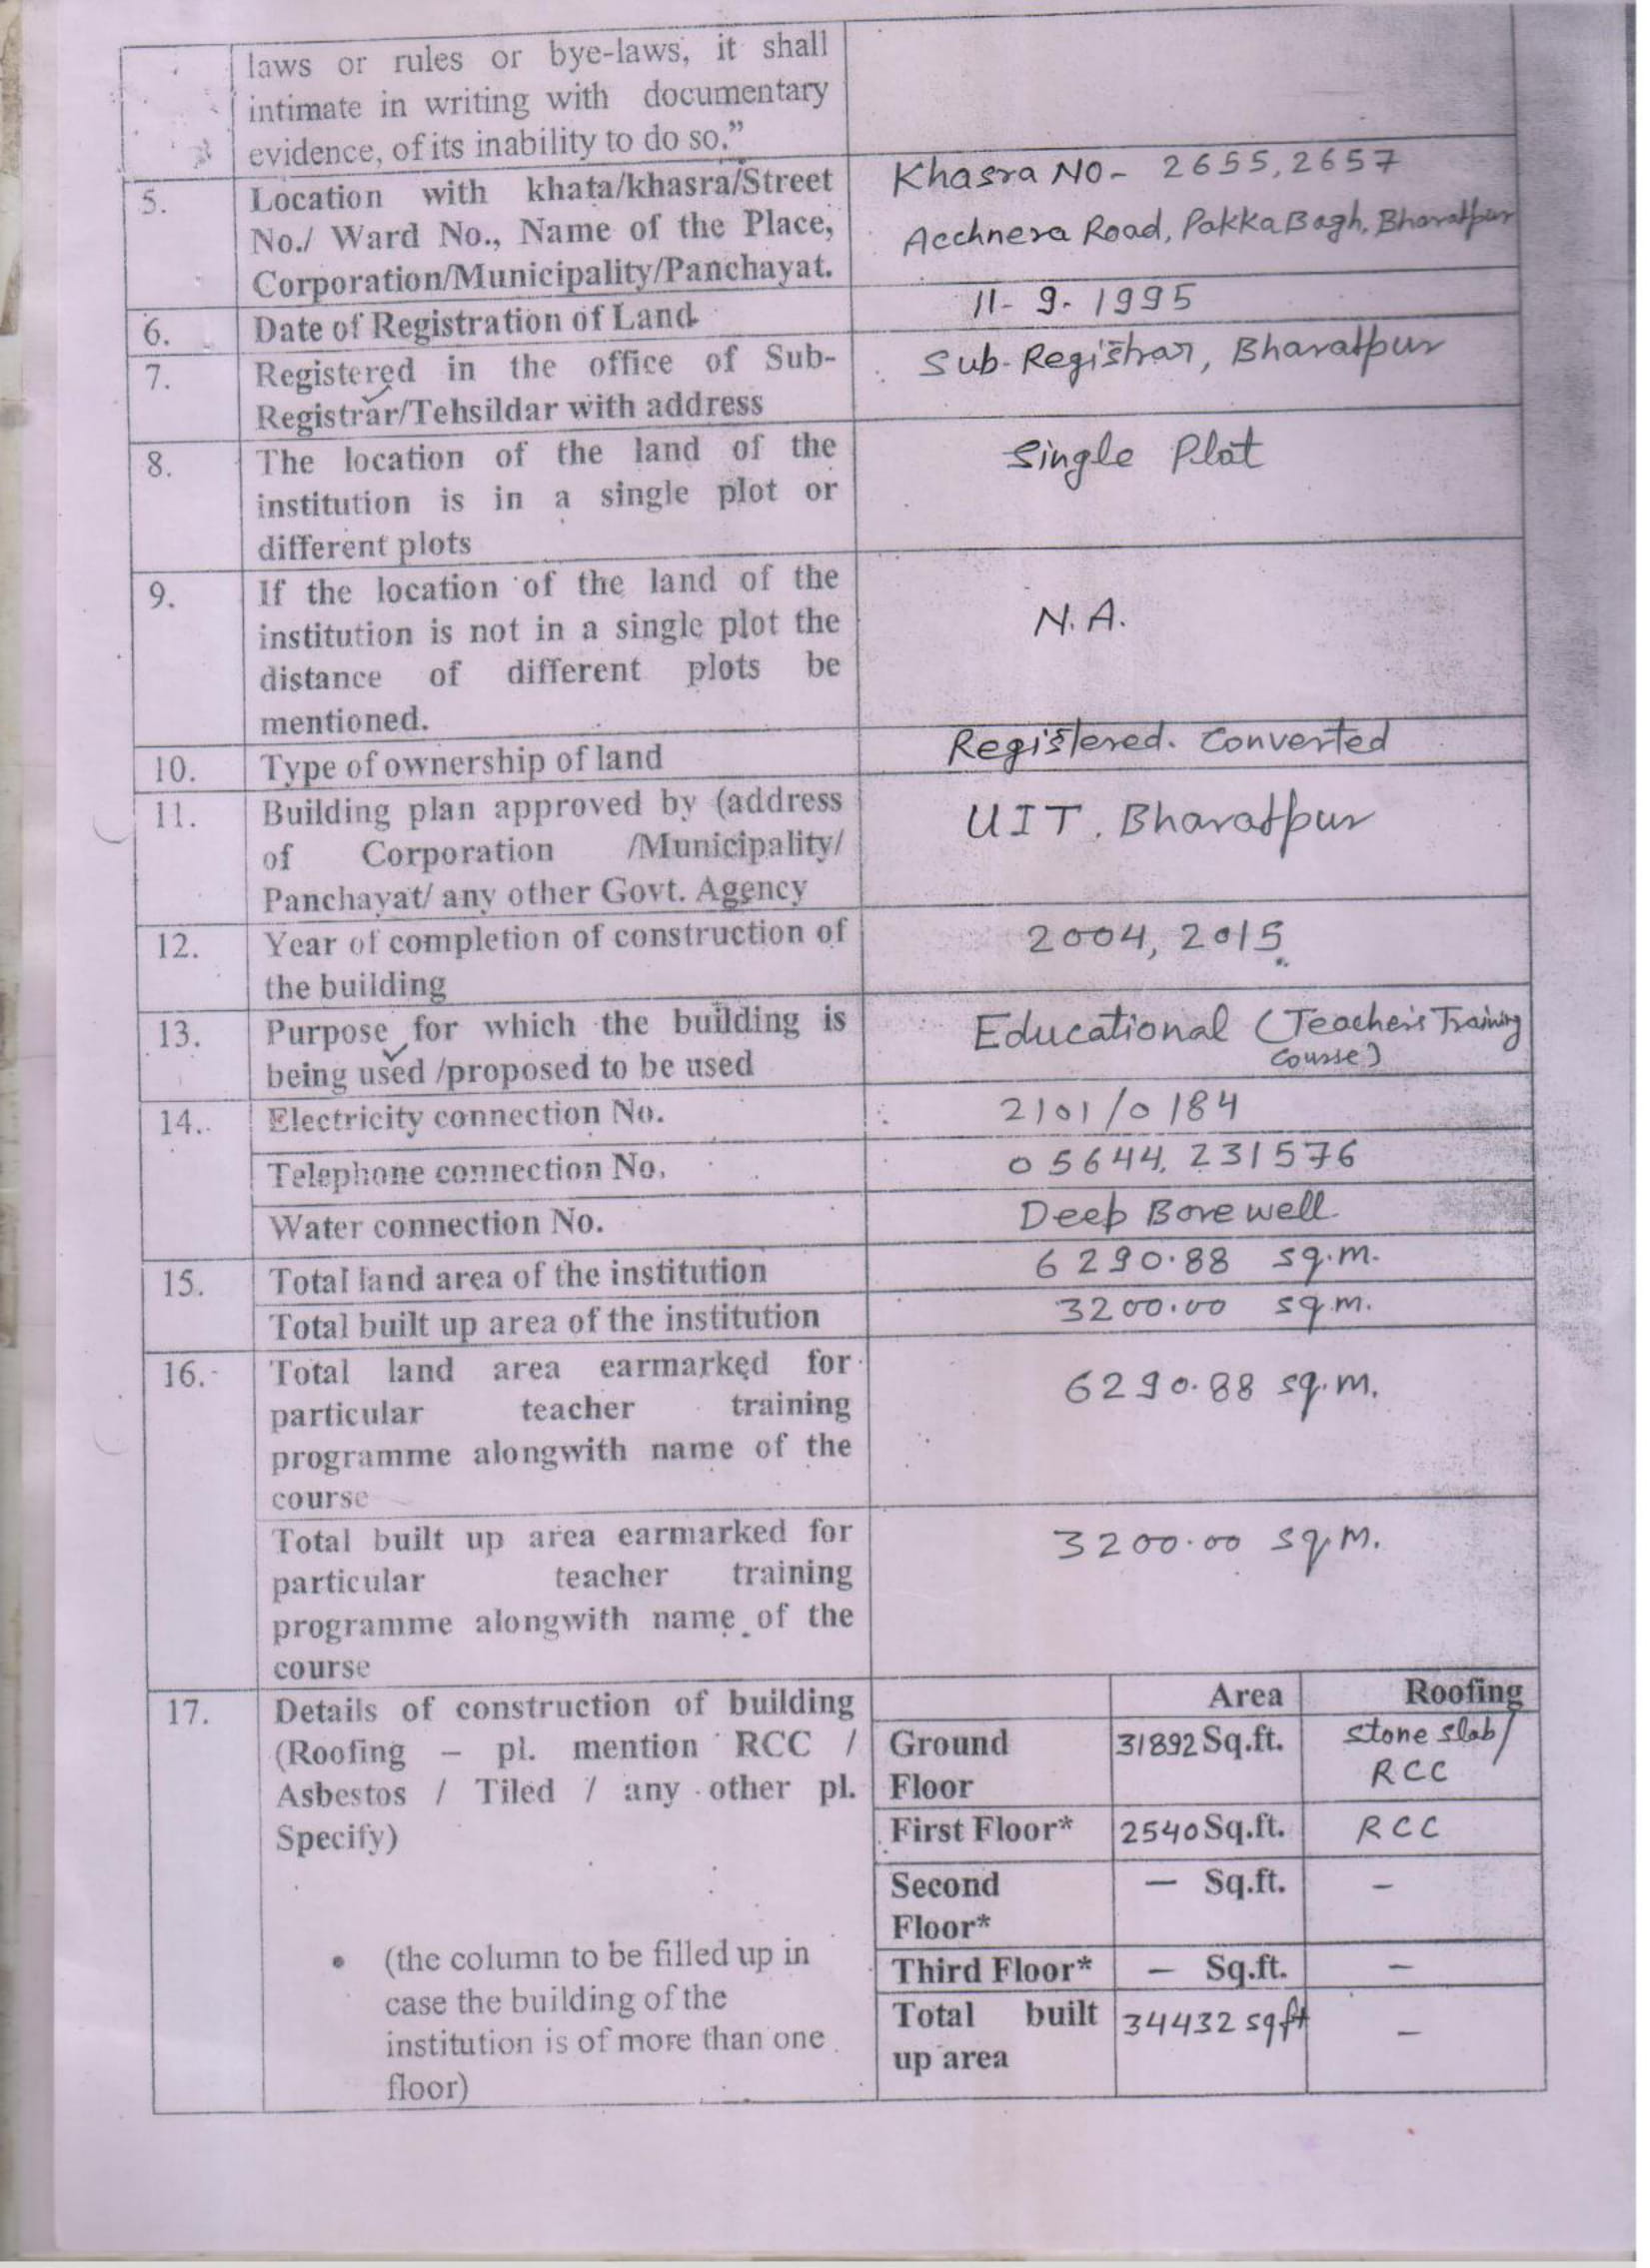 laws or rules or bye-laws, it shall
intimate in writing with documentary
evidence, of its inability to do so."
5. Location with khata/khasra/Street Khasra NO- 2655, 2657
No./ Ward No., Name of the Place, Acchnera Road, Pakka Bagh, Bharatpur
Corporation/Municipality/Panchayat.
6. Date of Registration of Land 11-9-1995
7. Registered in the office of Sub- Sub-Registrar, Bharatpur
Registrar/Tehsildar with address
8. The location of the land of the Single Plot
institution is in a single plot or
different plots
9. If the location of the land of the
institution is not in a single plot the N.A.
distance of different plots be
mentioned.
10. Type of ownership of land Registered. Converted
11. Building plan approved by (address UIT, Bharatpur
of Corporation /Municipality/
Panchayat/ any other Govt. Agency
12. Year of completion of construction of 2004, 2015
the building
13. Purpose for which the building is Educational (Teacher's Training
being used /proposed to be used Course)
14. Electricity connection No. 2101/0184
Telephone connection No. 05644, 231576
Water connection No. Deep Bore well
15. Total land area of the institution 6290.88 sq.m.
Total built up area of the institution 3200.00 sq.m.
16. Total land area earmarked for 6290.88 sq.m.
particular teacher training
programme alongwith name of the
course
Total built up area earmarked for 3200.00 sq.m.
particular teacher training
programme alongwith name of the
course
Area Roofing
17. Details of construction of building
(Roofing – pl. mention RCC / Ground 31892 Sq.ft. stone slab/
Asbestos / Tiled / any other pl. Floor RCC
Specify) First Floor* 2540 Sq.ft. RCC
Second — Sq.ft. –
Floor*
• (the column to be filled up in Third Floor* – Sq.ft. –
case the building of the Total built 34432 sqft –
institution is of more than one up area
floor)